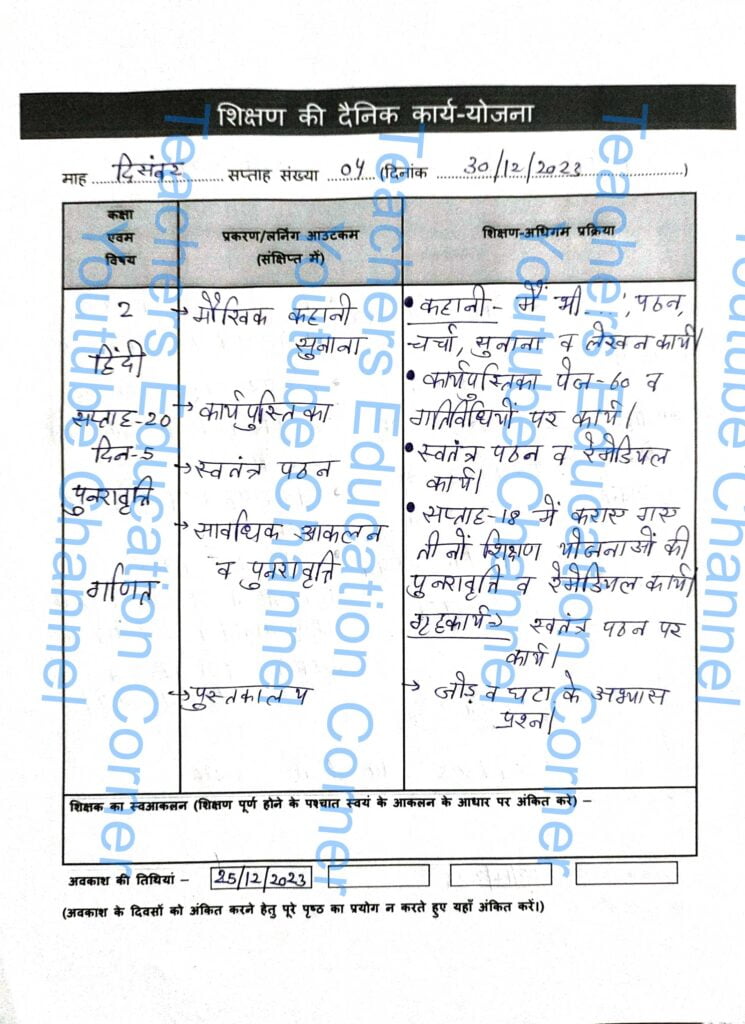 शिक्षण की दैनिक कार्य-योजना
माह दिसंबर सप्ताह संख्या 04 (दिनांक 30/12/2023)
कक्षा
एवम
विषय
प्रकरण/लर्निंग आउटकम
(संक्षिप्त में)
शिक्षण-अधिगम प्रक्रिया
2
हिंदी
सप्ताह-20
दिन-5
पुनरावृत्ति
गणित
→ मौखिक कहानी
सुनाना
→ कार्यपुस्तिका
→ स्वतंत्र पठन
→ सावधिक आकलन
व पुनरावृत्ति
→ पुस्तकालय
• कहानी - मैं भी ....., पठन,
चर्चा, सुनाना व लेखन कार्य।
• कार्यपुस्तिका पेज-60 व
गतिविधियों पर कार्य।
• स्वतंत्र पठन व रेमेडियल
कार्य।
• सप्ताह-18 में कराए गए
तीनों शिक्षण योजनाओं की
पुनरावृत्ति व रेमेडियल कार्य।
गृहकार्य→ स्वतंत्र पठन पर
कार्य।
→ जोड़ व घटा के अभ्यास
प्रश्न।
शिक्षक का स्वआकलन (शिक्षण पूर्ण होने के पश्चात स्वयं के आकलन के आधार पर अंकित करे) –
अवकाश की तिथियां – 25/12/2023
(अवकाश के दिवसों को अंकित करने हेतु पूरे पृष्ठ का प्रयोग न करते हुए यहाँ अंकित करें।)
Teachers Education Corner
Youtube Channel
Teachers Education Corner
Youtube Channel
Teachers Education Corner
Youtube Channel